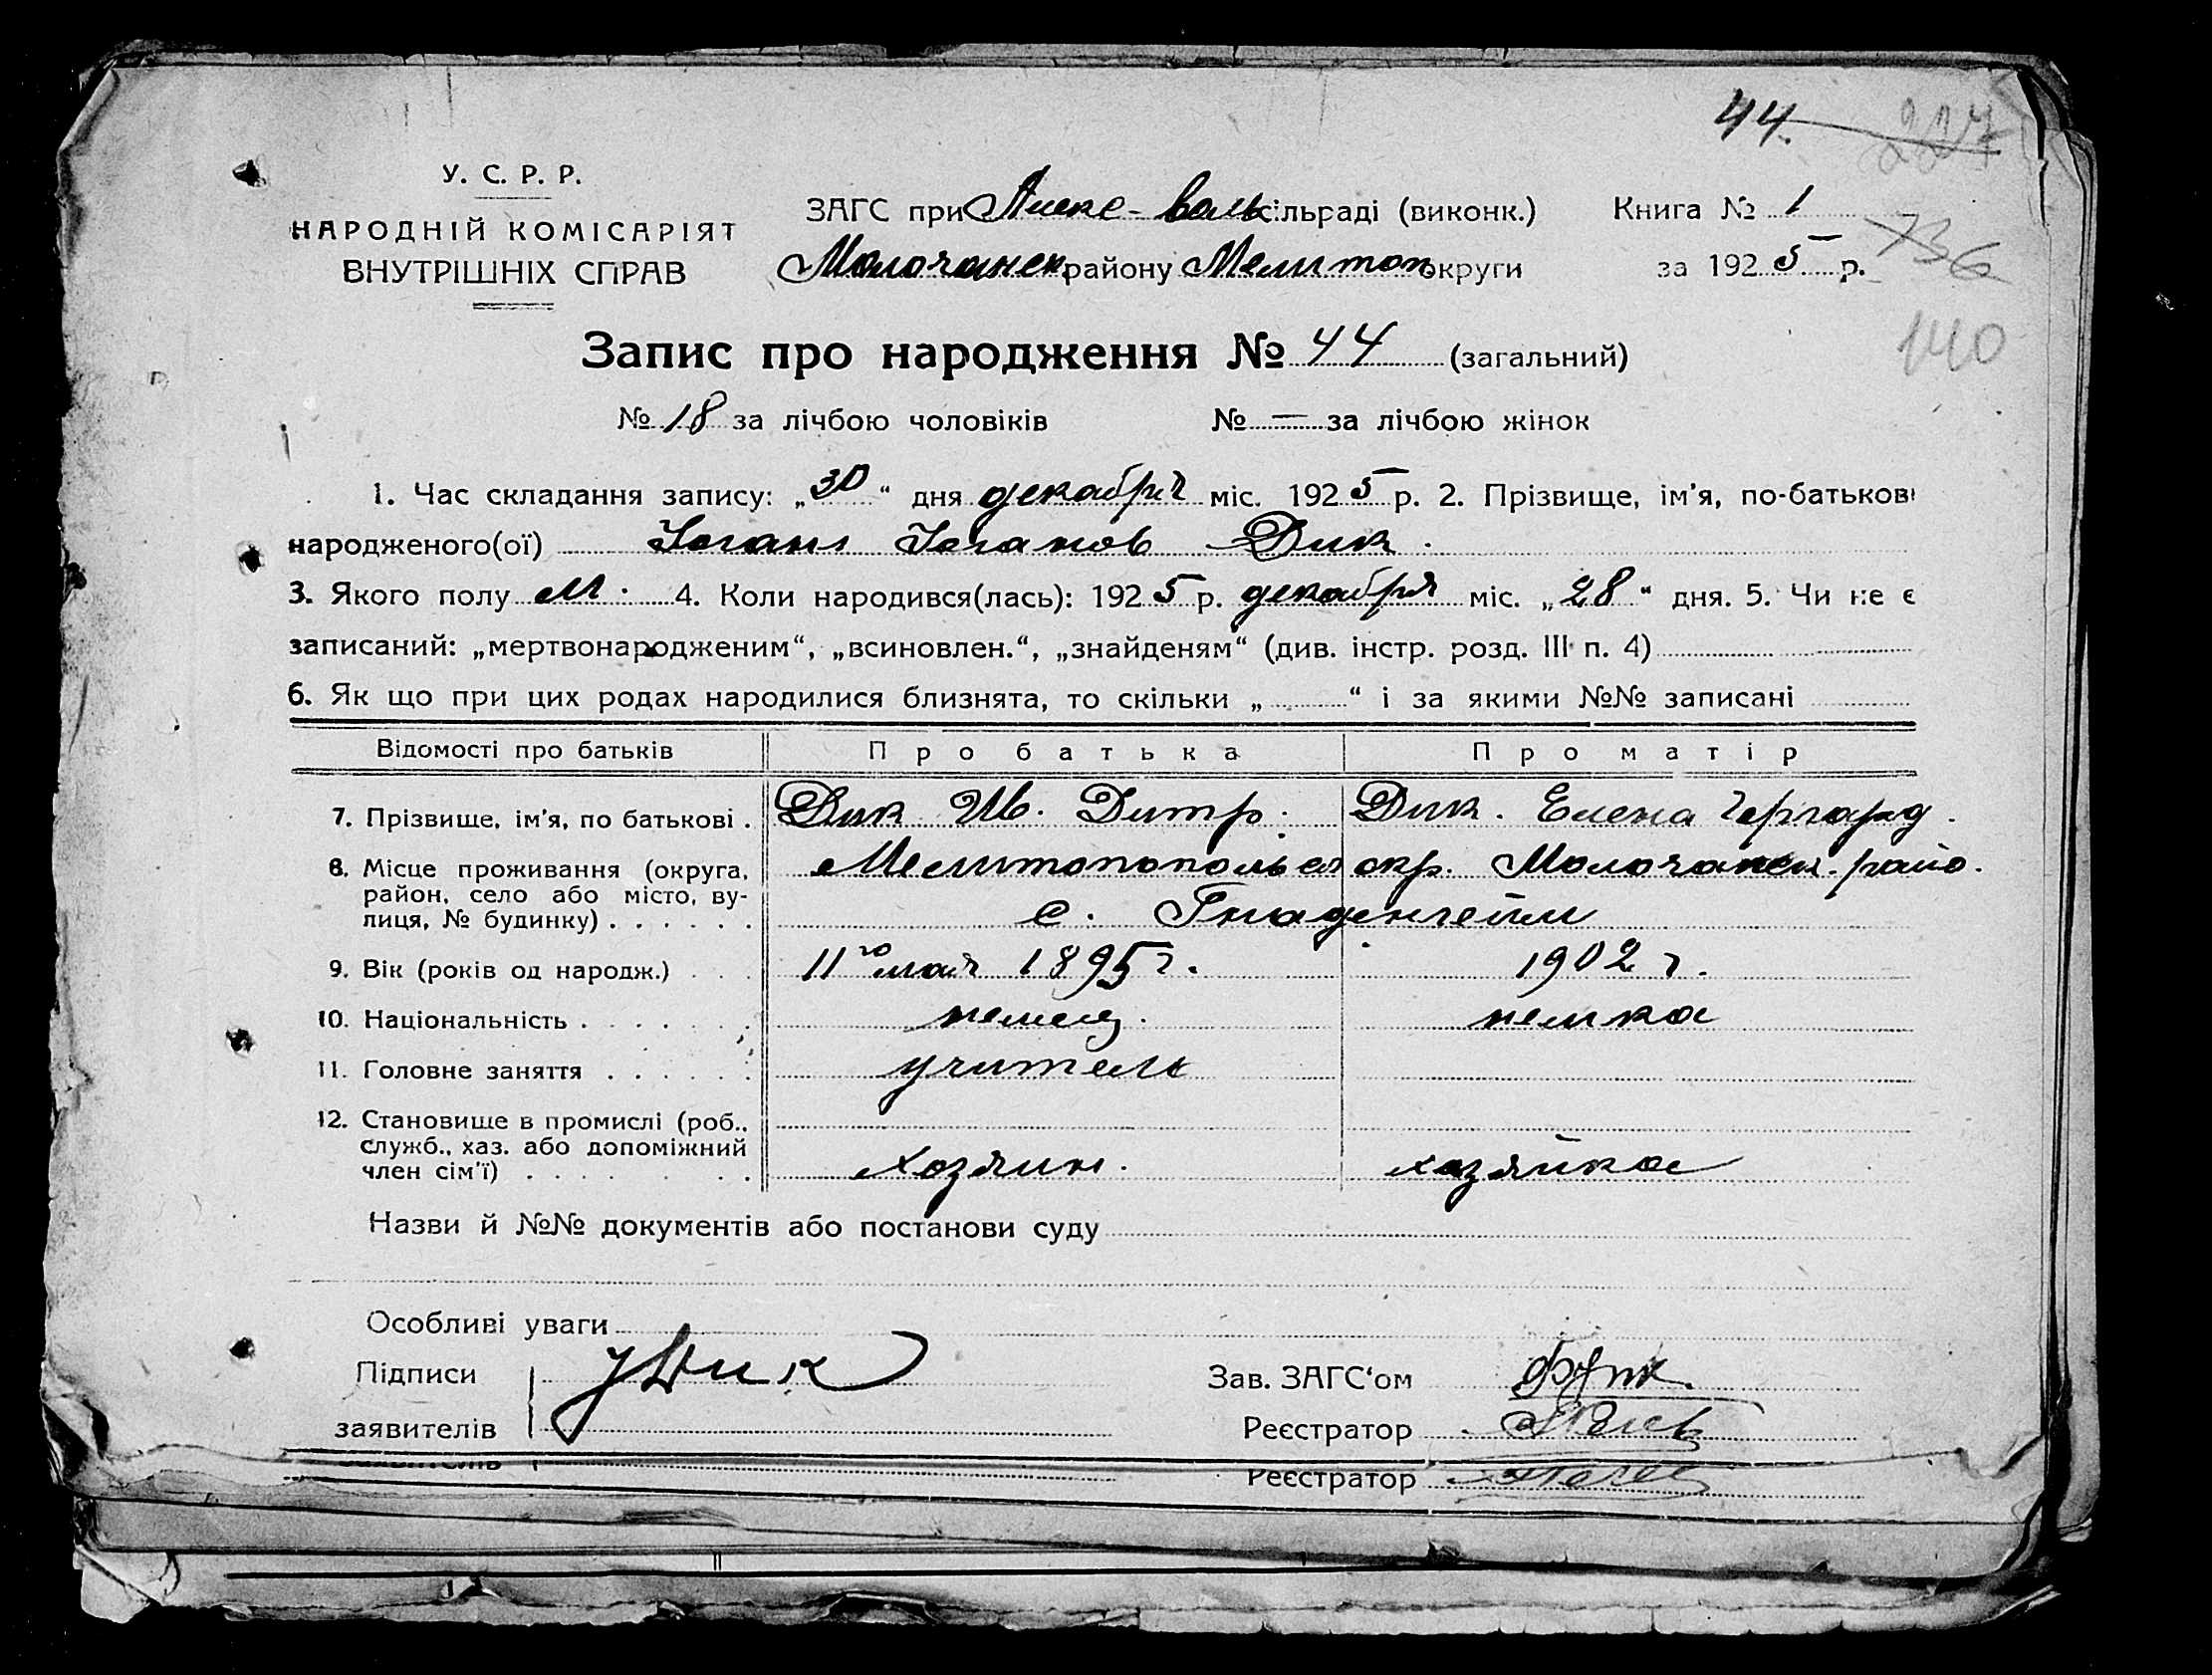 44. 227
У. С. Р. Р.
НАРОДНІЙ КОМІСАРІЯТ
ВНУТРІШНІХ СПРАВ
ЗАГС при Алекс-Воль сільраді (виконк.) Книга № 1
Молочанск району Мелитоп округи за 1925 р.
736
140
Запис про народження № 44 (загальний)
№ 18 за лічбою чоловіків № = за лічбою жінок
1. Час складання запису: „30“ дня декабря міс. 1925 р. 2. Прізвище, ім'я, по-батькові
народженого(ої) Иоганн Иоганов Дик.
3. Якого полу М. 4. Коли народився(лась): 1925 р. декабря міс. „28“ дня. 5. Чи не є
записаний: „мертвонародженим“, „всиновлен.“, „знайденям“ (див. інстр. розд. III п. 4)
6. Як що при цих родах народилися близнята, то скільки „ “ і за якими №№ записані
Відомості про батьків Про батька Про матір
7. Прізвище, ім'я, по батькові . Дик Ив. Дитр. Дик. Елена Гергард.
8. Місце проживання (округа, Мелитопопольск окр. Молочанск. райо.
район, село або місто, ву-
лиця, № будинку) . . . . . . с. Гнаденгейм
9. Вік (років од народж.) . . . 11го мая 1895 г. 1902 г.
10. Національність . . . . . . . немец. немка
11. Головне заняття . . . . . . учитель
12. Становище в промислі (роб.,
служб., хаз. або допоміжний
член сім'ї) . . . . . . . хозяин. хозяйка
Назви й №№ документів або постанови суду
Особливі уваги
Підписи
заявителів
И Дик
Зав. ЗАГС'ом
Реєстратор
заявителів
Реєстратор